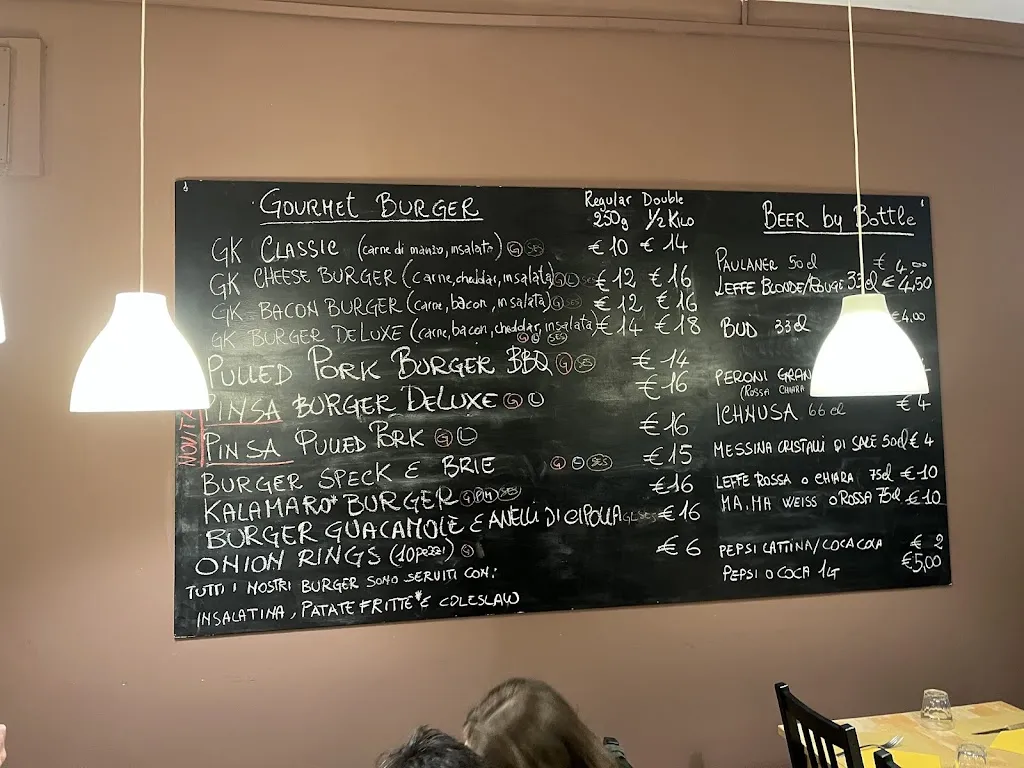 GOURMET BURGER
Regular Double
250g 1/2 KILO
GK CLASSIC (carne di manzo, insalata) G SES € 10 € 14
GK CHEESE BURGER (carne, cheddar, insalata) G L SES € 12 € 16
GK BACON BURGER (carne, bacon, insalata) G SES € 12 € 16
GK BURGER DELUXE (carne, bacon, cheddar, insalata) € 14 € 18
G L SES
PULLED PORK BURGER BBQ G SES € 14
NOVITÀ
PINSA BURGER DELUXE G L € 16
PINSA PULLED PORK G L € 16
BURGER SPECK E BRIE G L SES € 15
KALAMARO* BURGER G P M SES € 16
BURGER GUACAMOLE E ANELLI DI CIPOLLA G L SES € 16
ONION RINGS (10 pezzi) G € 6
TUTTI I NOSTRI BURGER SONO SERVITI CON:
INSALATINA, PATATE FRITTE* E COLESLAW
BEER by BOTTLE
PAULANER 50 cl € 4,00
LEFFE BLONDE/ROUGE 33cl € 4,50
BUD 33 cl € 4,00
PERONI GRAN
(ROSSA CHIARA 4
ICHNUSA 66 cl € 4
MESSINA CRISTALLI DI SALE 50cl € 4
LEFFE ROSSA O CHIARA 75cl € 10
MA.MA WEISS O ROSSA 75cl € 10
PEPSI LATTINA/COCA COLA € 2
PEPSI O COCA 1LT € 5,00